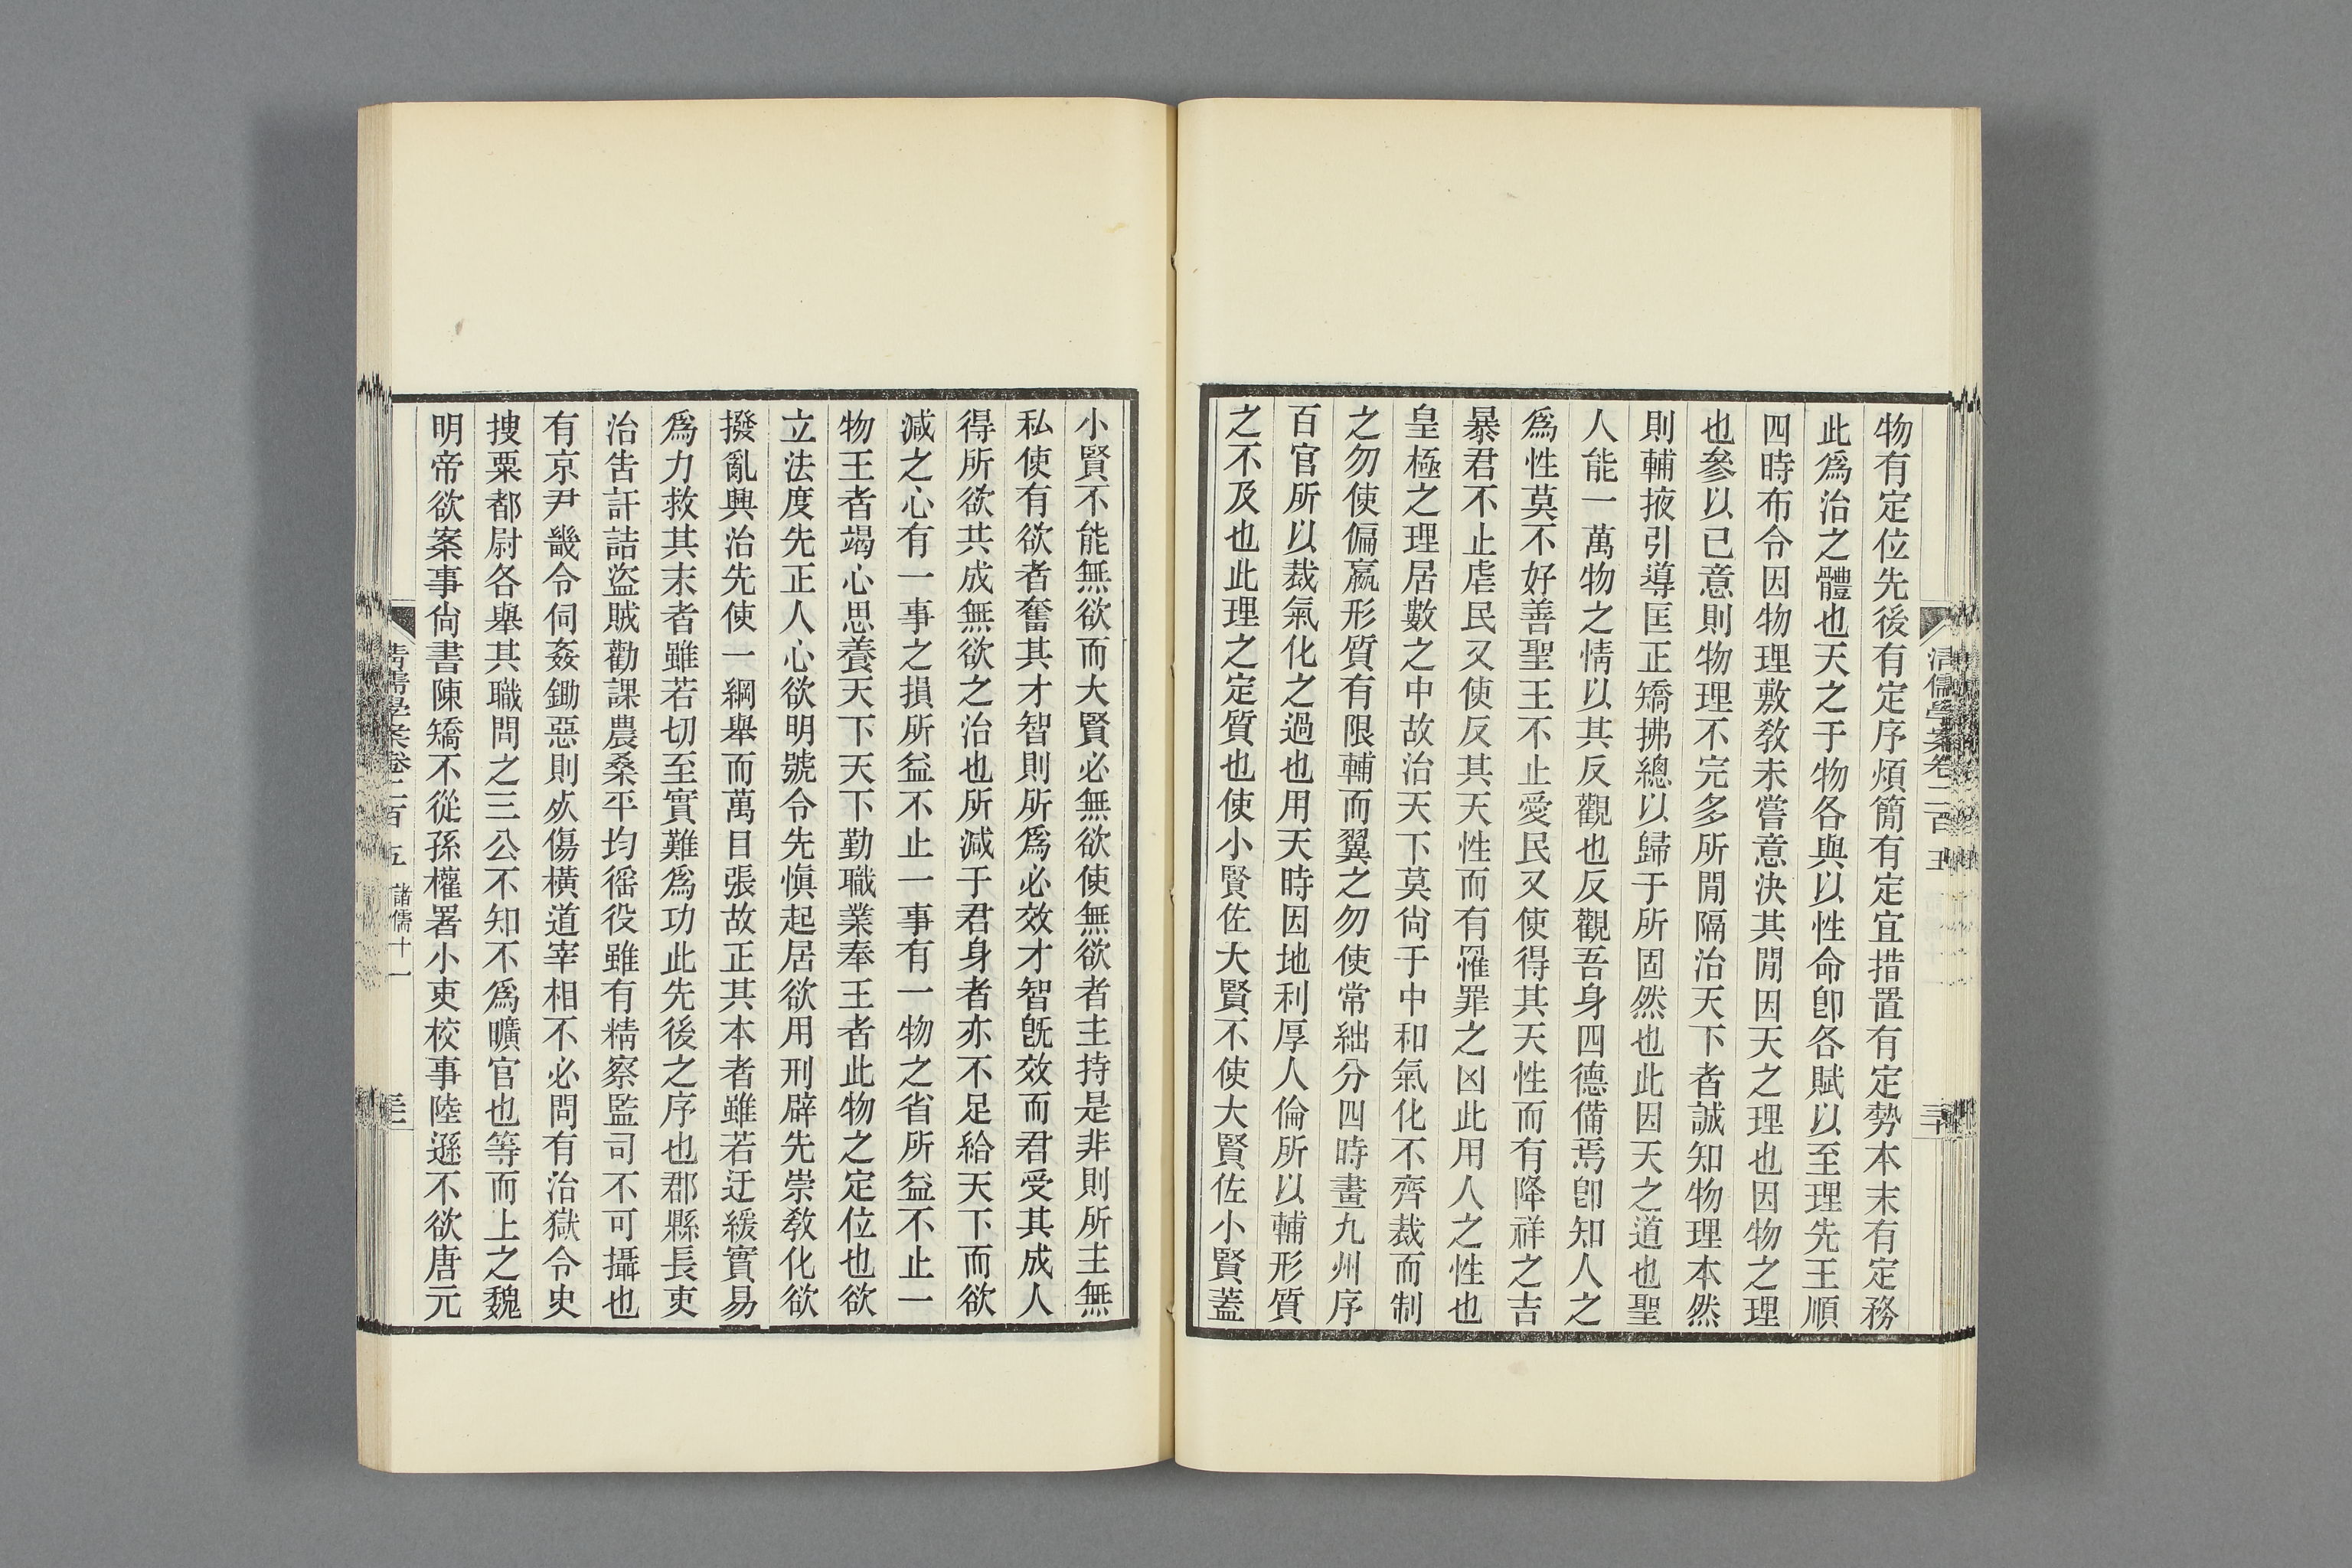 物有定位先後有定序煩簡有定宜措置有定勢本末有定務
此爲治之體也天之于物各與以性命卽各賦以至理先王順
四時布令因物理敷教未嘗意決其閒因天之理也因物之理
也參以已意則物理不完多所閒隔治天下者誠知物理本然
則輔掖引導匡正矯拂總以歸于所固然也此因天之道也聖
人能一萬物之情以其反觀也反觀吾身四德備焉卽知人之
爲性莫不好善聖王不止愛民又使得其天性而有降祥之吉
暴君不止虐民又使反其天性而有罹罪之凶此用人之性也
皇極之理居數之中故治天下莫尙于中和氣化不齊裁而制
之勿使偏嬴形質有限輔而翼之勿使常絀分四時畫九州序
百官所以裁氣化之過也用天時因地利厚人倫所以輔形質
之不及也此理之定質也使小賢佐大賢不使大賢佐小賢蓋
清儒學案卷二百五
小賢不能無欲而大賢必無欲使無欲者主持是非則所主無
私使有欲者奮其才智則所爲必效才智旣效而君受其成人
得所欲共成無欲之治也所減于君身者亦不足給天下而欲
減之心有一事之損所益不止一事有一物之省所益不止一
物王者竭心思養天下天下勤職業奉王者此物之定位也欲
立法度先正人心欲明號令先愼起居欲用刑辟先崇教化欲
撥亂興治先使一綱舉而萬目張故正其本者雖若迂緩實易
爲力救其末者雖若切至實難爲功此先後之序也郡縣長吏
治告訐詰盜賊勸課農桑平均徭役雖有精察監司不可攝也
有京尹畿令伺姦鋤惡則夾傷橫道宰相不必問有治獄令史
捜粟都尉各舉其職問之三公不知不爲曠官也等而上之魏
明帝欲案事尙書陳矯不從孫權署小吏校事陸遜不欲唐元
清儒學案卷二百五 諸儒十一